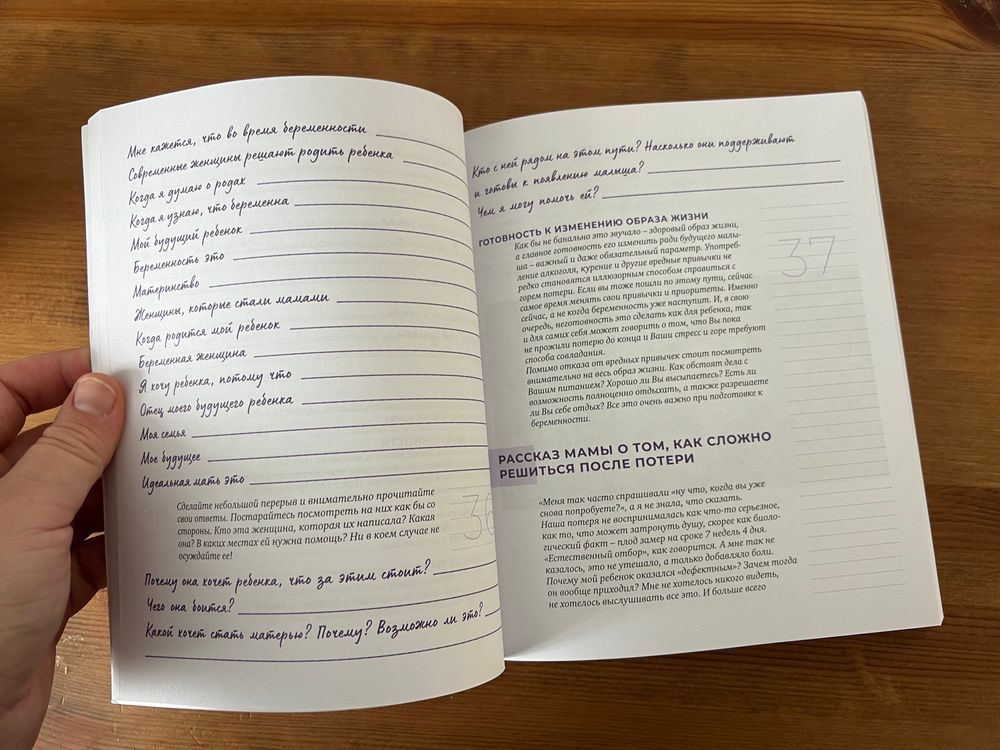 Мне кажется, что во время беременности
Современные женщины решают родить ребенка
Когда я думаю о родах
Когда я узнаю, что беременна
Мой будущий ребенок
Беременность это
Материнство
Женщины, которые стали мамами
Когда родится мой ребенок
Беременная женщина
Я хочу ребенка, потому что
Отец моего будущего ребенка
Моя семья
Мое будущее
Идеальная мать это
Сделайте небольшой перерыв и внимательно прочитайте
свои ответы. Постарайтесь посмотреть на них как бы со
стороны. Кто эта женщина, которая их написала? Какая
она? В каких местах ей нужна помощь? Ни в коем случае не
осуждайте ее!
36
Почему она хочет ребенка, что за этим стоит?
Чего она боится?
Какой хочет стать матерью? Почему? Возможно ли это?
Кто с ней рядом на этом пути? Насколько они поддерживают
и готовы к появлению малыша?
Чем я могу помочь ей?
ГОТОВНОСТЬ К ИЗМЕНЕНИЮ ОБРАЗА ЖИЗНИ
Как бы не банально это звучало – здоровый образ жизни,
а главное готовность его изменить ради будущего малы-
ша – важный и даже обязательный параметр. Употреб-
ление алкоголя, курение и другие вредные привычки не
редко становятся иллюзорным способом справиться с
горем потери. Если вы тоже пошли по этому пути, сейчас
самое время менять свои привычки и приоритеты. Именно
сейчас, а не когда беременность уже наступит. И, в свою
очередь, неготовность это сделать как для ребенка, так
и для самих себя может говорить о том, что Вы пока
не прожили потерю до конца и Ваши стресс и горе требуют
способа совладания.
Помимо отказа от вредных привычек стоит посмотреть
внимательно на весь образ жизни. Как обстоят дела с
Вашим питанием? Хорошо ли Вы высыпаетесь? Есть ли
возможность полноценно отдыхать, а также разрешаете
ли Вы себе отдых? Все это очень важно при подготовке к
беременности.
37
РАССКАЗ МАМЫ О ТОМ, КАК СЛОЖНО
РЕШИТЬСЯ ПОСЛЕ ПОТЕРИ
«Меня так часто спрашивали «ну что, когда вы уже
снова попробуете?», а я не знала, что сказать.
Наша потеря не воспринималась как что-то серьезное,
как то, что может затронуть душу, скорее как биоло-
гический факт – плод замер на сроке 7 недель 4 дня.
«Естественный отбор», как говорится. А мне так не
казалось, это не утешало, а только добавляло боли.
Почему мой ребенок оказался «дефектным»? Зачем тогда
он вообще приходил? Мне не хотелось никого видеть,
не хотелось выслушивать все это. И больше всего